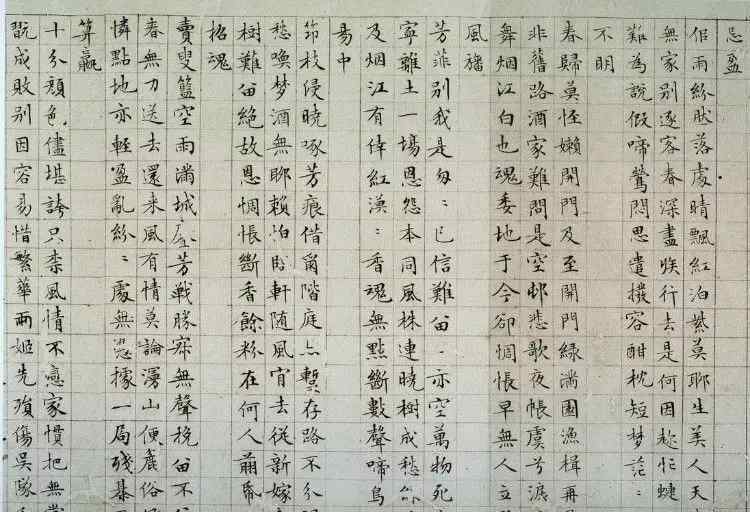 忌盈
佀雨紛肰落處晴飄紅泊紫莫聊生美人天
無家別逐客春深盡族行去是何因趂忙蜨
難為說假啼鶯悶思遣撥容酣枕短梦茫〻
不明
春歸莫怪嬾開門及至開門綠滿園漁楫再
非舊路酒家難問是空邨悲歌夜帳虞兮淚
舞烟江白也魂委地于今卻惆悵早無人立
風旛
芳菲別我是匆〻已信難留〻亦空萬物死
寧離土一塲恩怨本同風株連曉樹成愁
及烟江有倖紅漠〻香魂無點斷數聲啼鳥
易中
笻枝侵曉啄芳痕借爾階庭亦暫存路不分
愁喚梦酒無聊賴怕臨軒随風宵去從新嫁
樹難留絕故恩惆悵斷香餘粉在何人翦帋
招魂
賣叟籃空雨滿城芳戰勝寂無聲挽留不
春無刀送去還来風有情莫論漫山便麄俗
憐點地亦輕盈亂紛〻處無凴據一局殘棊
算贏
十分顏色儘堪誇只柰風情不戀家慣把無
翫成敗別因容易惜繁華兩姬先殞傷吳隊